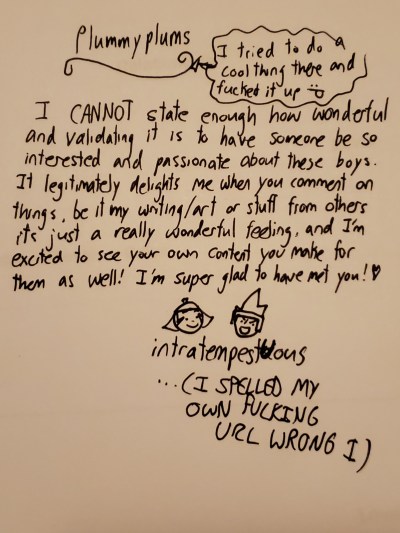 Plummyplums
I tried to do a
cool thing there and
fucked it up
I CANNOT state enough how wonderful
and validating it is to have someone be so
interested and passionate about these boys.
It legitimately delights me when you comment on
things, be it my writing/art or stuff from others
it's just a really wonderful feeling, and I'm
excited to see your own content you make for
them as well! I'm super glad to have met you! ♡
intratempestuous
...(I SPELLED MY
OWN FUCKING
URL WRONG I)